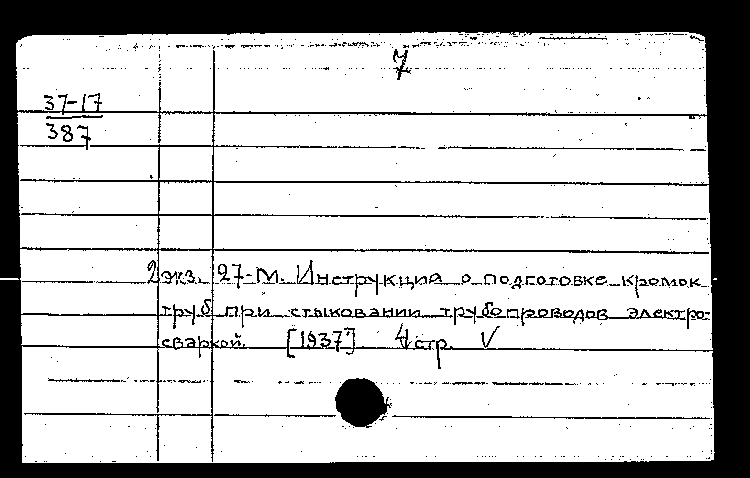 7
37-17
387
2 экз. 27-М. Инструкция о подготовке кромок
труб при стыковании трубопроводов электро-
сваркой. [1937?]. 4 стр. V